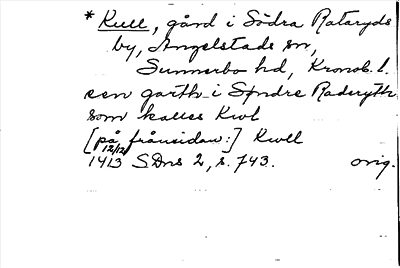 * Kull, gård i Södra Rataryds
by, Angelstads sn,
Sunnerbo hd, Kronob. l.
een garth i Søndre Raderyth
som kalles Kwl
[på frånsidan:] Kwll
12/12
1413 SDns 2, s. 743. orig.